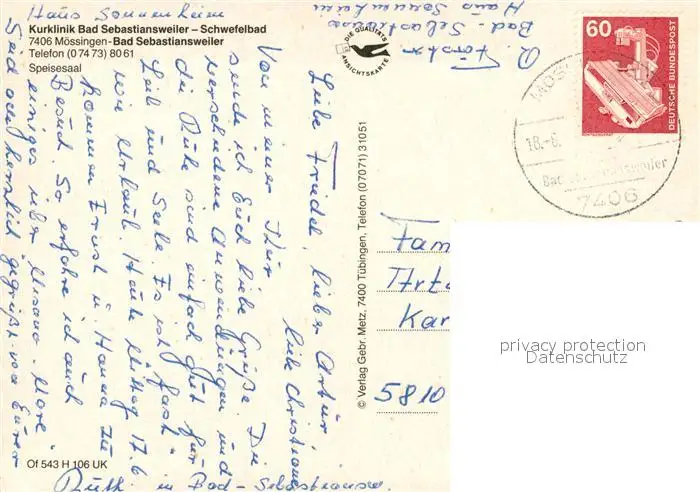 Haus Sonnenheim
Kurklinik Bad Sebastiansweiler – Schwefelbad
7406 Mössingen-Bad Sebastiansweiler
Telefon (0 74 73) 80 61
Speisesaal
DIE QUALITÄTS
ANSICHTSKARTE
Bad-Sebastiansw
Haus Sonnenheim
60
DEUTSCHE BUNDESPOST
MÖS
18.-6.
Bad Sebastiansweiler
7406
Liebe Friedel, lieber Artur
liebe Christiane
Von meiner Kur
sende ich Euch liebe Grüße. Die
verschiedene Anwendungen und
die Ruhe sind einfach gut für
Leib und Seele. Es ist fast
wie Urlaub. Heute Mittag 17.6
kommen Ernst u. Hanna zu
Besuch. So erfahre ich auch
einiges über Misano-Mare.
Seid alle herzlich gegrüßt von Eurer
Ruth. in Bad-Sebastiansw.
© Verlag Gebr. Metz, 7400 Tübingen, Telefon (07071) 31051
Fam
Art
Kar
5810
privacy protection
Datenschutz
Of 543 H 106 UK